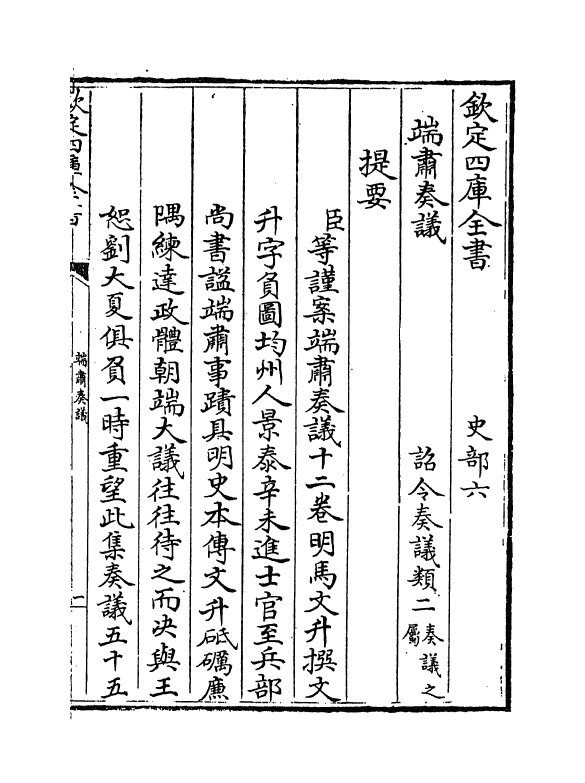 欽定四庫全書　史部六
端肅奏議　詔令奏議類二奏議之屬
提要
臣等謹案端肅奏議十二卷明馬文升撰文
升字負圖均州人景泰辛未進士官至兵部
尚書諡端肅事蹟具明史本傳文升砥礪廉
隅練達政體朝端大議往往待之而決與王
恕劉大夏俱負一時重望此集奏議五十五
欽定四庫全書
端肅奏議
一